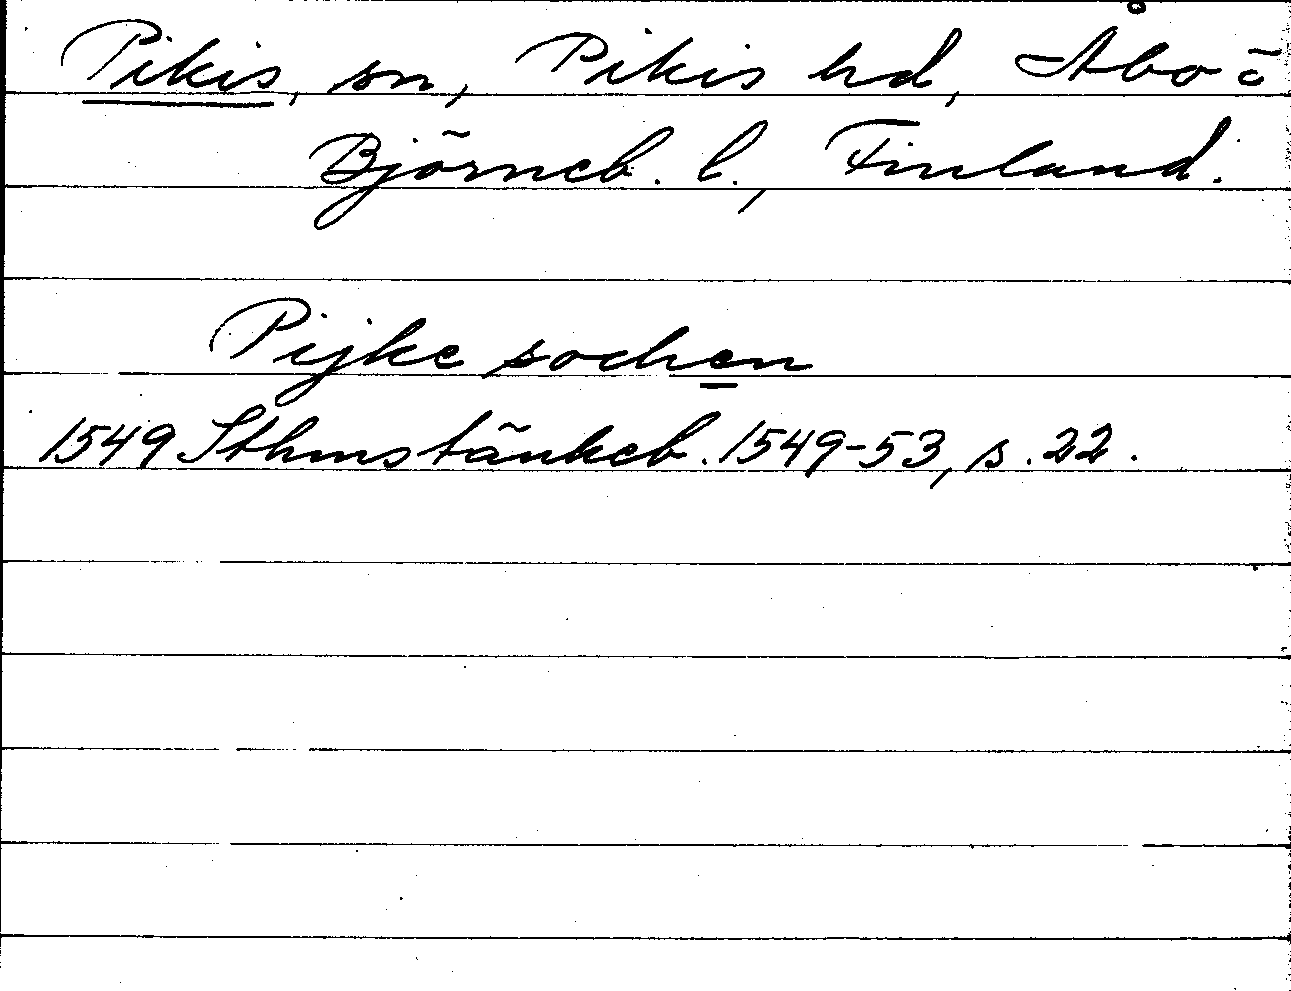 Pikis, sn, Pikis hd, Åbo o
Björneb. l., Finland.
Pijke sochen
1549 Sthms tänkeb. 1549-53, s. 22.